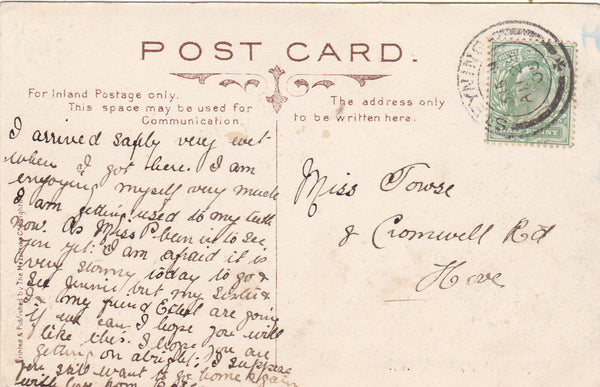 POST CARD.
For Inland Postage only.
This space may be used for
Communication.
The address only
to be written here.
STEYNING
PENNY
I arrived safly very wet
when I got here. I am
enjoying myself very much
I am getting used to my teeth
now. As Miss P- been in to see
you yet. I am afraid it is
very stormy today to go &
see Jinnie but my Sister
& my friend Ethel are going
if we can. I hope you will
like this. I hope you are
getting on alright. I suppose
you still want to go home again
with love from
Miss Towse
8 Cromwell Rd
Hove
Printed & Published by The